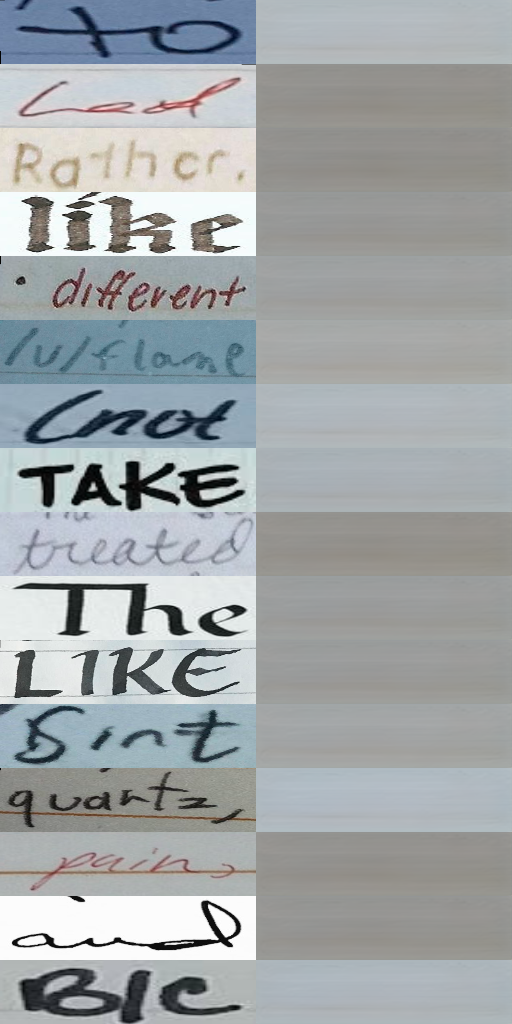 to
Lead
Rather.
like
• different
/u/flame
(not
TAKE
treated
The
LIKE
Sint
quartz,
pain,
and
B/c